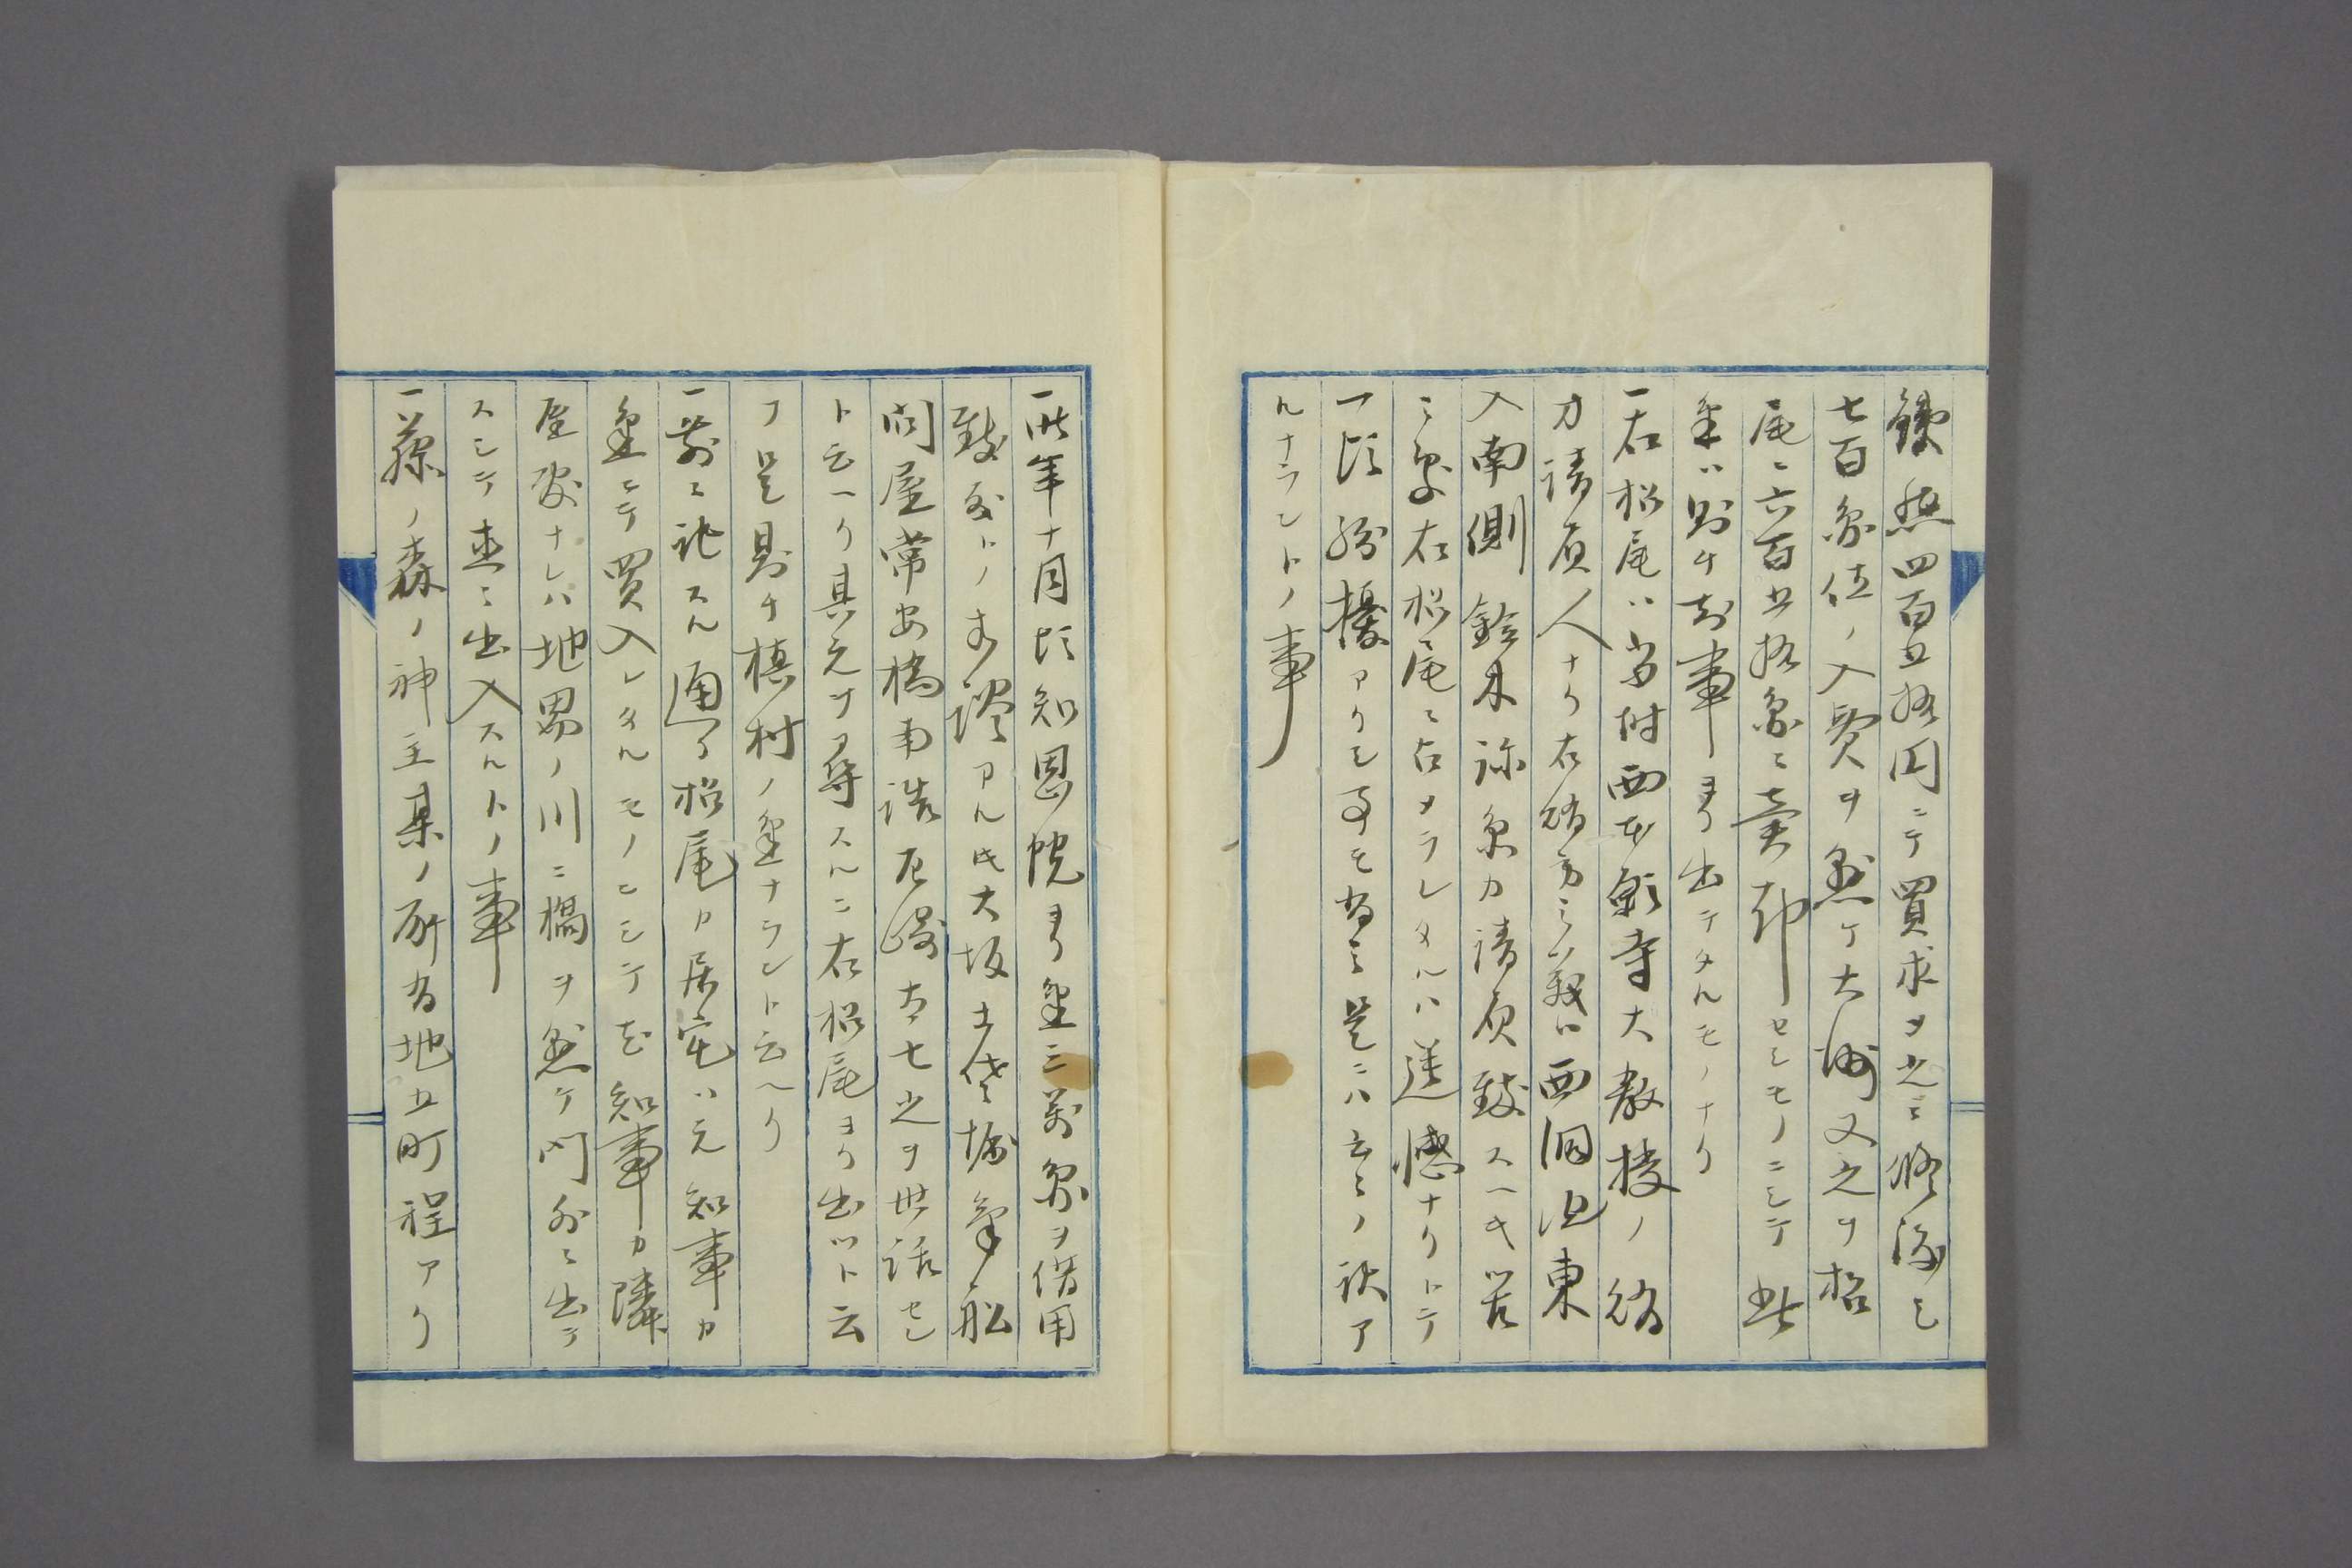 鐵然四百五拾円ニテ買求ヲ之ニ修復シ
七百円位ノ入費ヲ懸ケ大洲又之ヲ松
尾ニ六百五拾円ニ売却セシモノニシテ此
金ハ則チ知事ヨリ出テタルモノナリ
一右松尾ハ当時西本願寺大教校ノ絵
方請負人ナリ右絵方之義ハ西洞院東
入南側鈴木弥兵衛カ請負致スヘキ筈
ニ 右松尾ニ占メラレタルハ遺憾ナリトテ
一時紛擾アリシ事モ有之是ニハ云々ノ訳ア
ルナラントノ事
一昨年十月頃知恩院ヨリ金三万円ヲ借用
致度トノ内談アル由大坂土佐堀蒸気船
問屋常安橋南詰尼崎太七之ヲ世話セシ
ト云ヘリ其元ヲ尋スルニ右松尾ヨリ出ツト云
フ是則チ槙村ノ金ナラント云ヘリ
一前ニ記スル通リ松尾カ居宅ハ元知事カ
金ニテ買入レタルモノニシテ元知事カ隣
屋敷ナレハ地界ノ川ニ橋ヲ懸ケ門外ニ出テ
スシテ直ニ出入スルトノ事
一藤ノ森ノ神主某ノ所有地五町程アリ